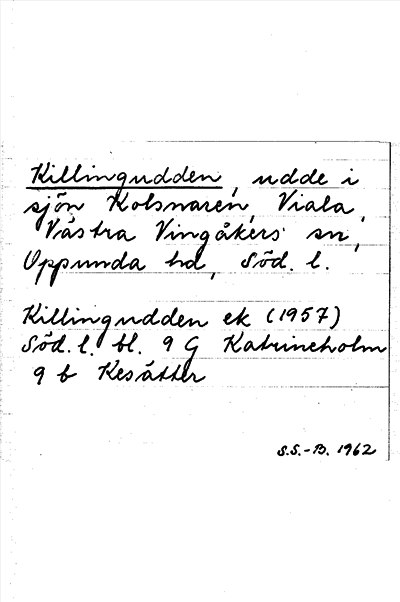 Killingudden, udde i
sjön Kolsnaren, Viala,
Västra Vingåkers sn,
Oppunda hd, Söd. l.
Killingudden ek (1957)
Söd. l. bl. 9 G Katrineholm
9 b Kesätter
S.S.-B. 1962